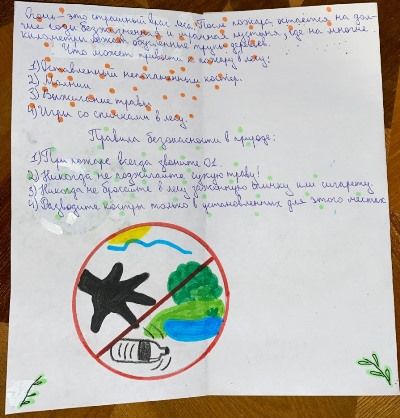 Огонь - это страшный враг леса. После пожара остается на дол-
гие годы безжизненная и мрачная пустыня, где на многие
километры лежат обугленные трупы деревьев.
Что может привести к пожару в лесу:
1) Оставленный непотушенный костёр.
2) Молнии
3) Выжигание травы
4) Игры со спичками в лесу.
Правила безопасности в природе:
1) При пожаре всегда звоните 01.
2) Никогда не поджигайте сухую траву!
3) Никогда не бросайте в лесу зажженную спичку или сигарету.
4) Разводите костры только в установленных для этого местах